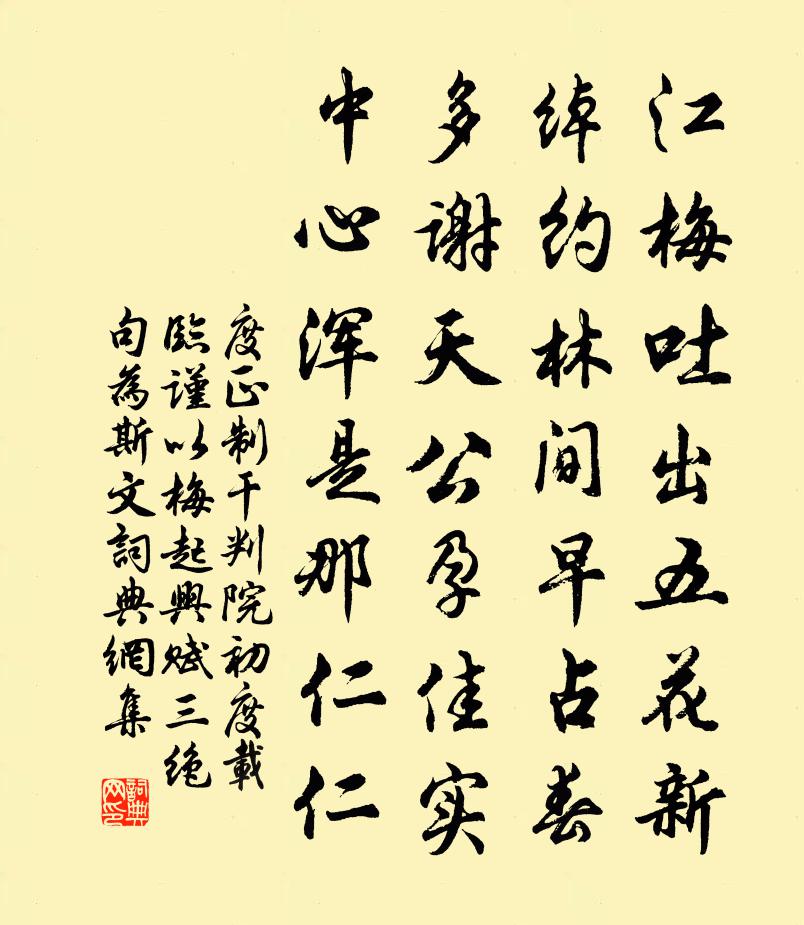 江梅吐出五花新
绰约林间早占春
多谢天公孕佳实
中心浑是那仁仁
度正制干判院初度载
临谨以梅起兴赋三绝
句为斯文词典网集
词典网印